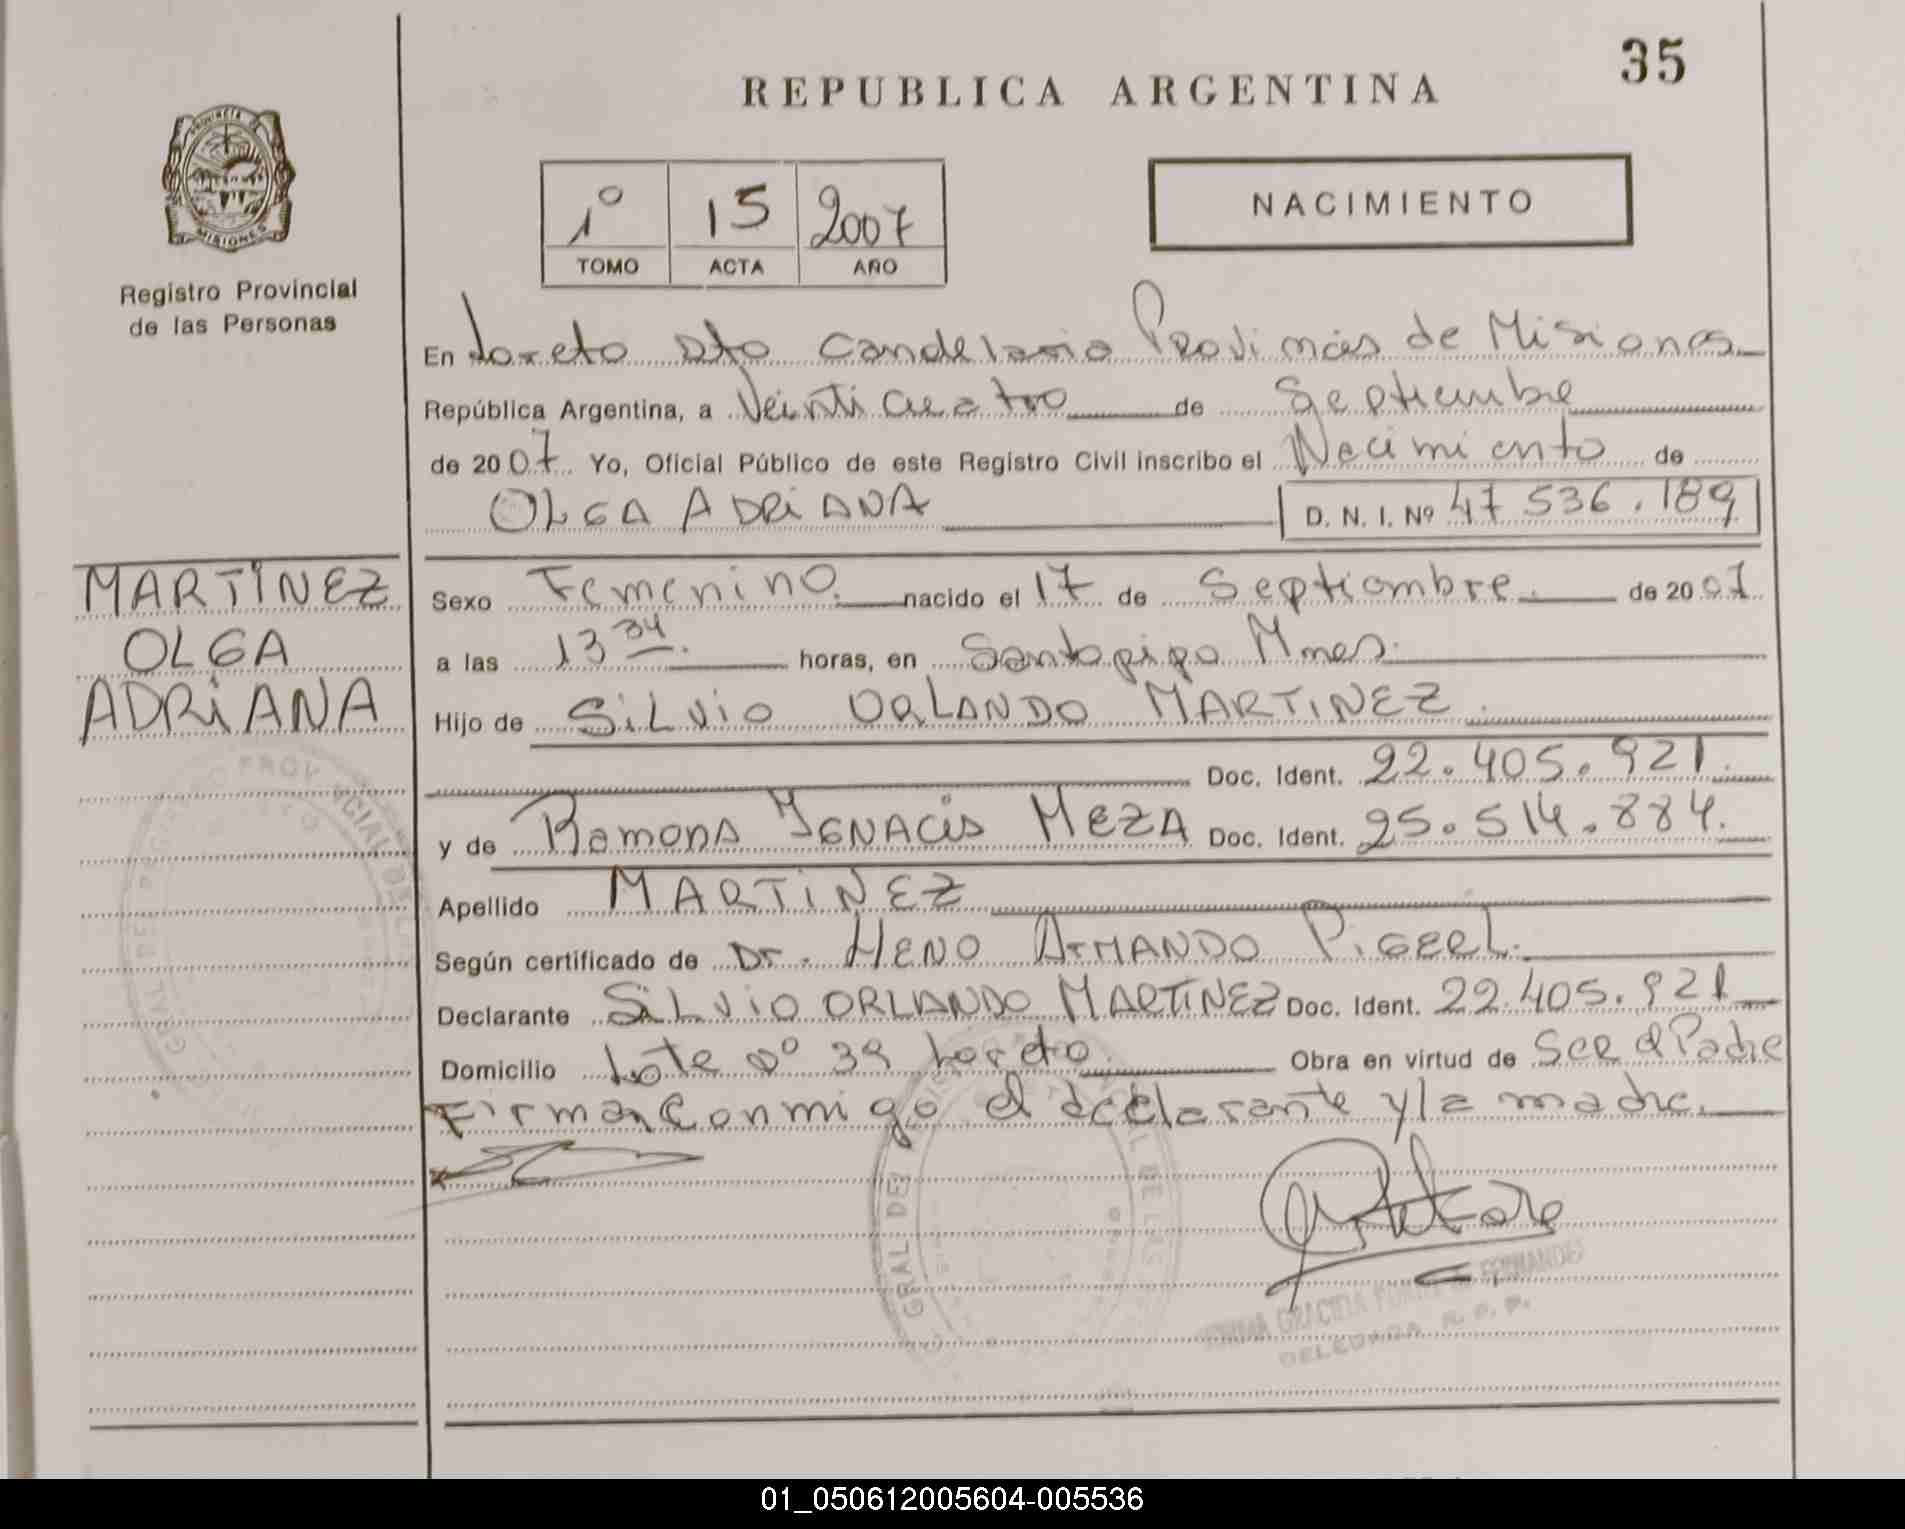 35
REPUBLICA ARGENTINA
PROVINCIA DE
MISIONES
Registro Provincial
de las Personas
1º 15 2007
TOMO ACTA AÑO
NACIMIENTO
En Loreto Dto Candelaria Provincias de Misiones
República Argentina, a Veinticuatro de Septiembre
de 2007 Yo, Oficial Público de este Registro Civil inscribo el Nacimiento de
OLGA ADRIANA D. N. I. Nº 47 536.189
MARTINEZ
OLGA
ADRIANA
Sexo Femenino. nacido el 17 de Septiembre. de 2007
a las 13 34. horas, en Santopipo Mnes.
Hijo de SILVIO ORLANDO MARTINEZ.
Doc. Ident. 22.405.921.
y de Ramona IGNACIA MEZA Doc. Ident. 25.514.884.
Apellido MARTINEZ
Según certificado de Dr. HENO ARMANDO PIGERL.
Declarante SILVIO ORLANDO MARTINEZ Doc. Ident. 22.405.921
Domicilio Lote Nº 39 Loreto. Obra en virtud de Ser el Padre
Firman Conmigo el declarante y la madre.
GRAL DEL
GRACIELA
FERNANDEZ
DELEGADA R. P. P.
01_050612005604-005536